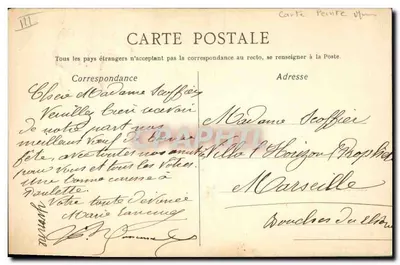 Carte Peinte
CARTE POSTALE
Tous les pays étrangers n'acceptent pas la correspondance au recto, se renseigner à la Poste
Correspondance
Adresse
Chère Madame Scoffier
Veuillez bien recevoir
de notre part nos
meilleurs vœux de bonne
fête, avec toutes nos
pour vous et tous les vôtres
une bonne caresse à
Paulette.
Votre toute dévouée
Marie
Madame Scoffier
Villa l'Horizon
Marseille
Bouches du Rhône